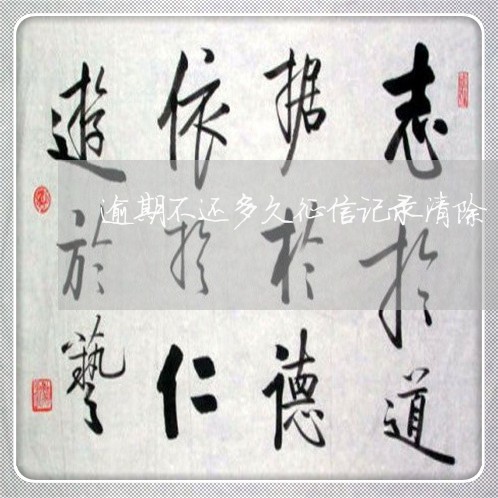 志扵道
据於德
依扵仁
遊於藝
逾期不还多久征信记录清除